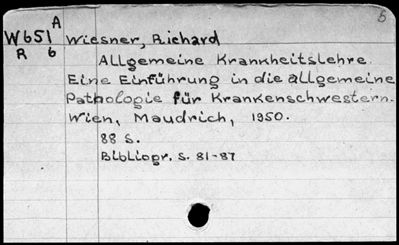 5
A
W651 Wiesner, Richard
R 6
Allgemeine Krankheitslehre.
Eine Einführung in die allgemeine
Pathologie für Krankenschwestern.
Wien, Maudrich, 1950.
88 S.
Bibliogr. S. 81-87